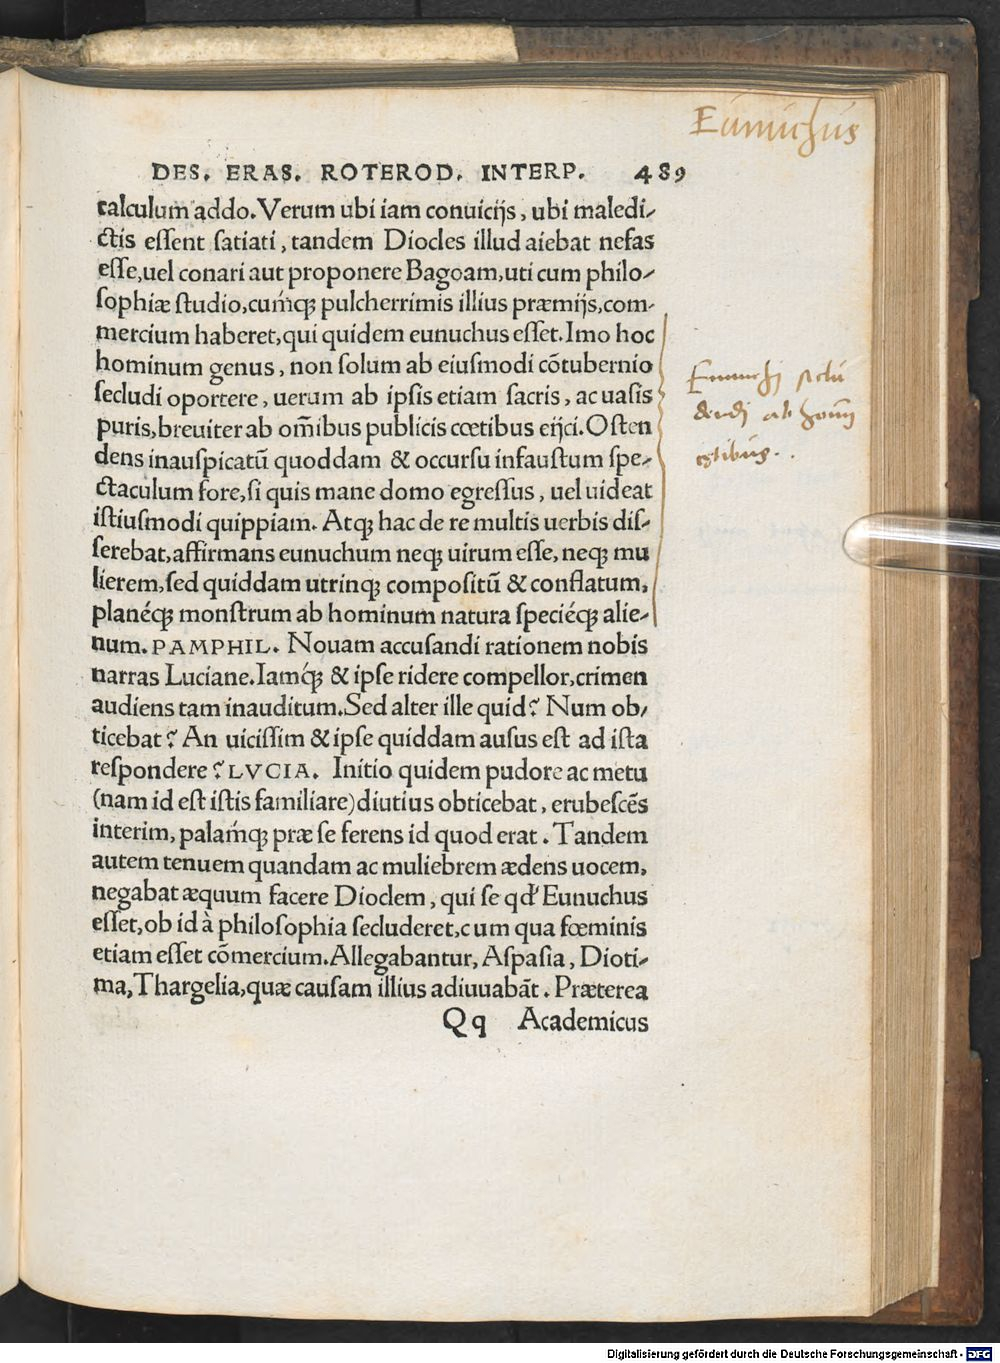 Eunuchus
DES. ERAS. ROTEROD. INTERP. 489
calculum addo. Verum ubi iam conuicijs, ubi maledi-
ctis essent satiati, tandem Diocles illud aiebat nefas
esse, uel conari aut proponere Bagoam, uti cum philo-
sophiæ studio, cuḿqꝫ pulcherrimis illius præmijs, com-
mercium haberet, qui quidem eunuchus esset. Imo hoc
hominum genus, non solum ab eiusmodi cõtubernio
secludi oportere, uerum ab ipsis etiam sacris, ac uasis
puris, breuiter ab om̃ibus publicis cœtibus eijci. Osten
dens inauspicatũ quoddam & occursu infaustum spe-
ctaculum fore, si quis mane domo egressus, uel uideat
istiusmodi quippiam. Atqꝫ hac de re multis uerbis dis-
serebat, affirmans eunuchum neqꝫ uirum esse, neqꝫ mu
lierem, sed quiddam utrinqꝫ compositũ & conflatum,
planéqꝫ monstrum ab hominum natura speciéqꝫ alie-
num. PAMPHIL. Nouam accusandi rationem nobis
narras Luciane. Iaḿqꝫ & ipse ridere compellor, crimen
audiens tam inauditum. Sed alter ille quid? Num ob-
ticebat? An uicissim & ipse quiddam ausus est ad ista
respondere? LVCIA. Initio quidem pudore ac metu
(nam id est istis familiare) diutius obticebat, erubescẽs
interim, palaḿqꝫ præ se ferens id quod erat. Tandem
autem tenuem quandam ac muliebrem ædens uocem,
negabat æquum facere Dioclem, qui se qd' Eunuchus
esset, ob id à philosophia secluderet, cum qua fœminis
etiam esset cõmercium. Allegabantur, Aspasia, Dioti-
ma, Thargelia, quæ causam illius adiuuabãt. Præterea
Qq Academicus
Eunuchi seclu
dendi ab
Digitalisierung gefördert durch die Deutsche Forschungsgemeinschaft - DFG